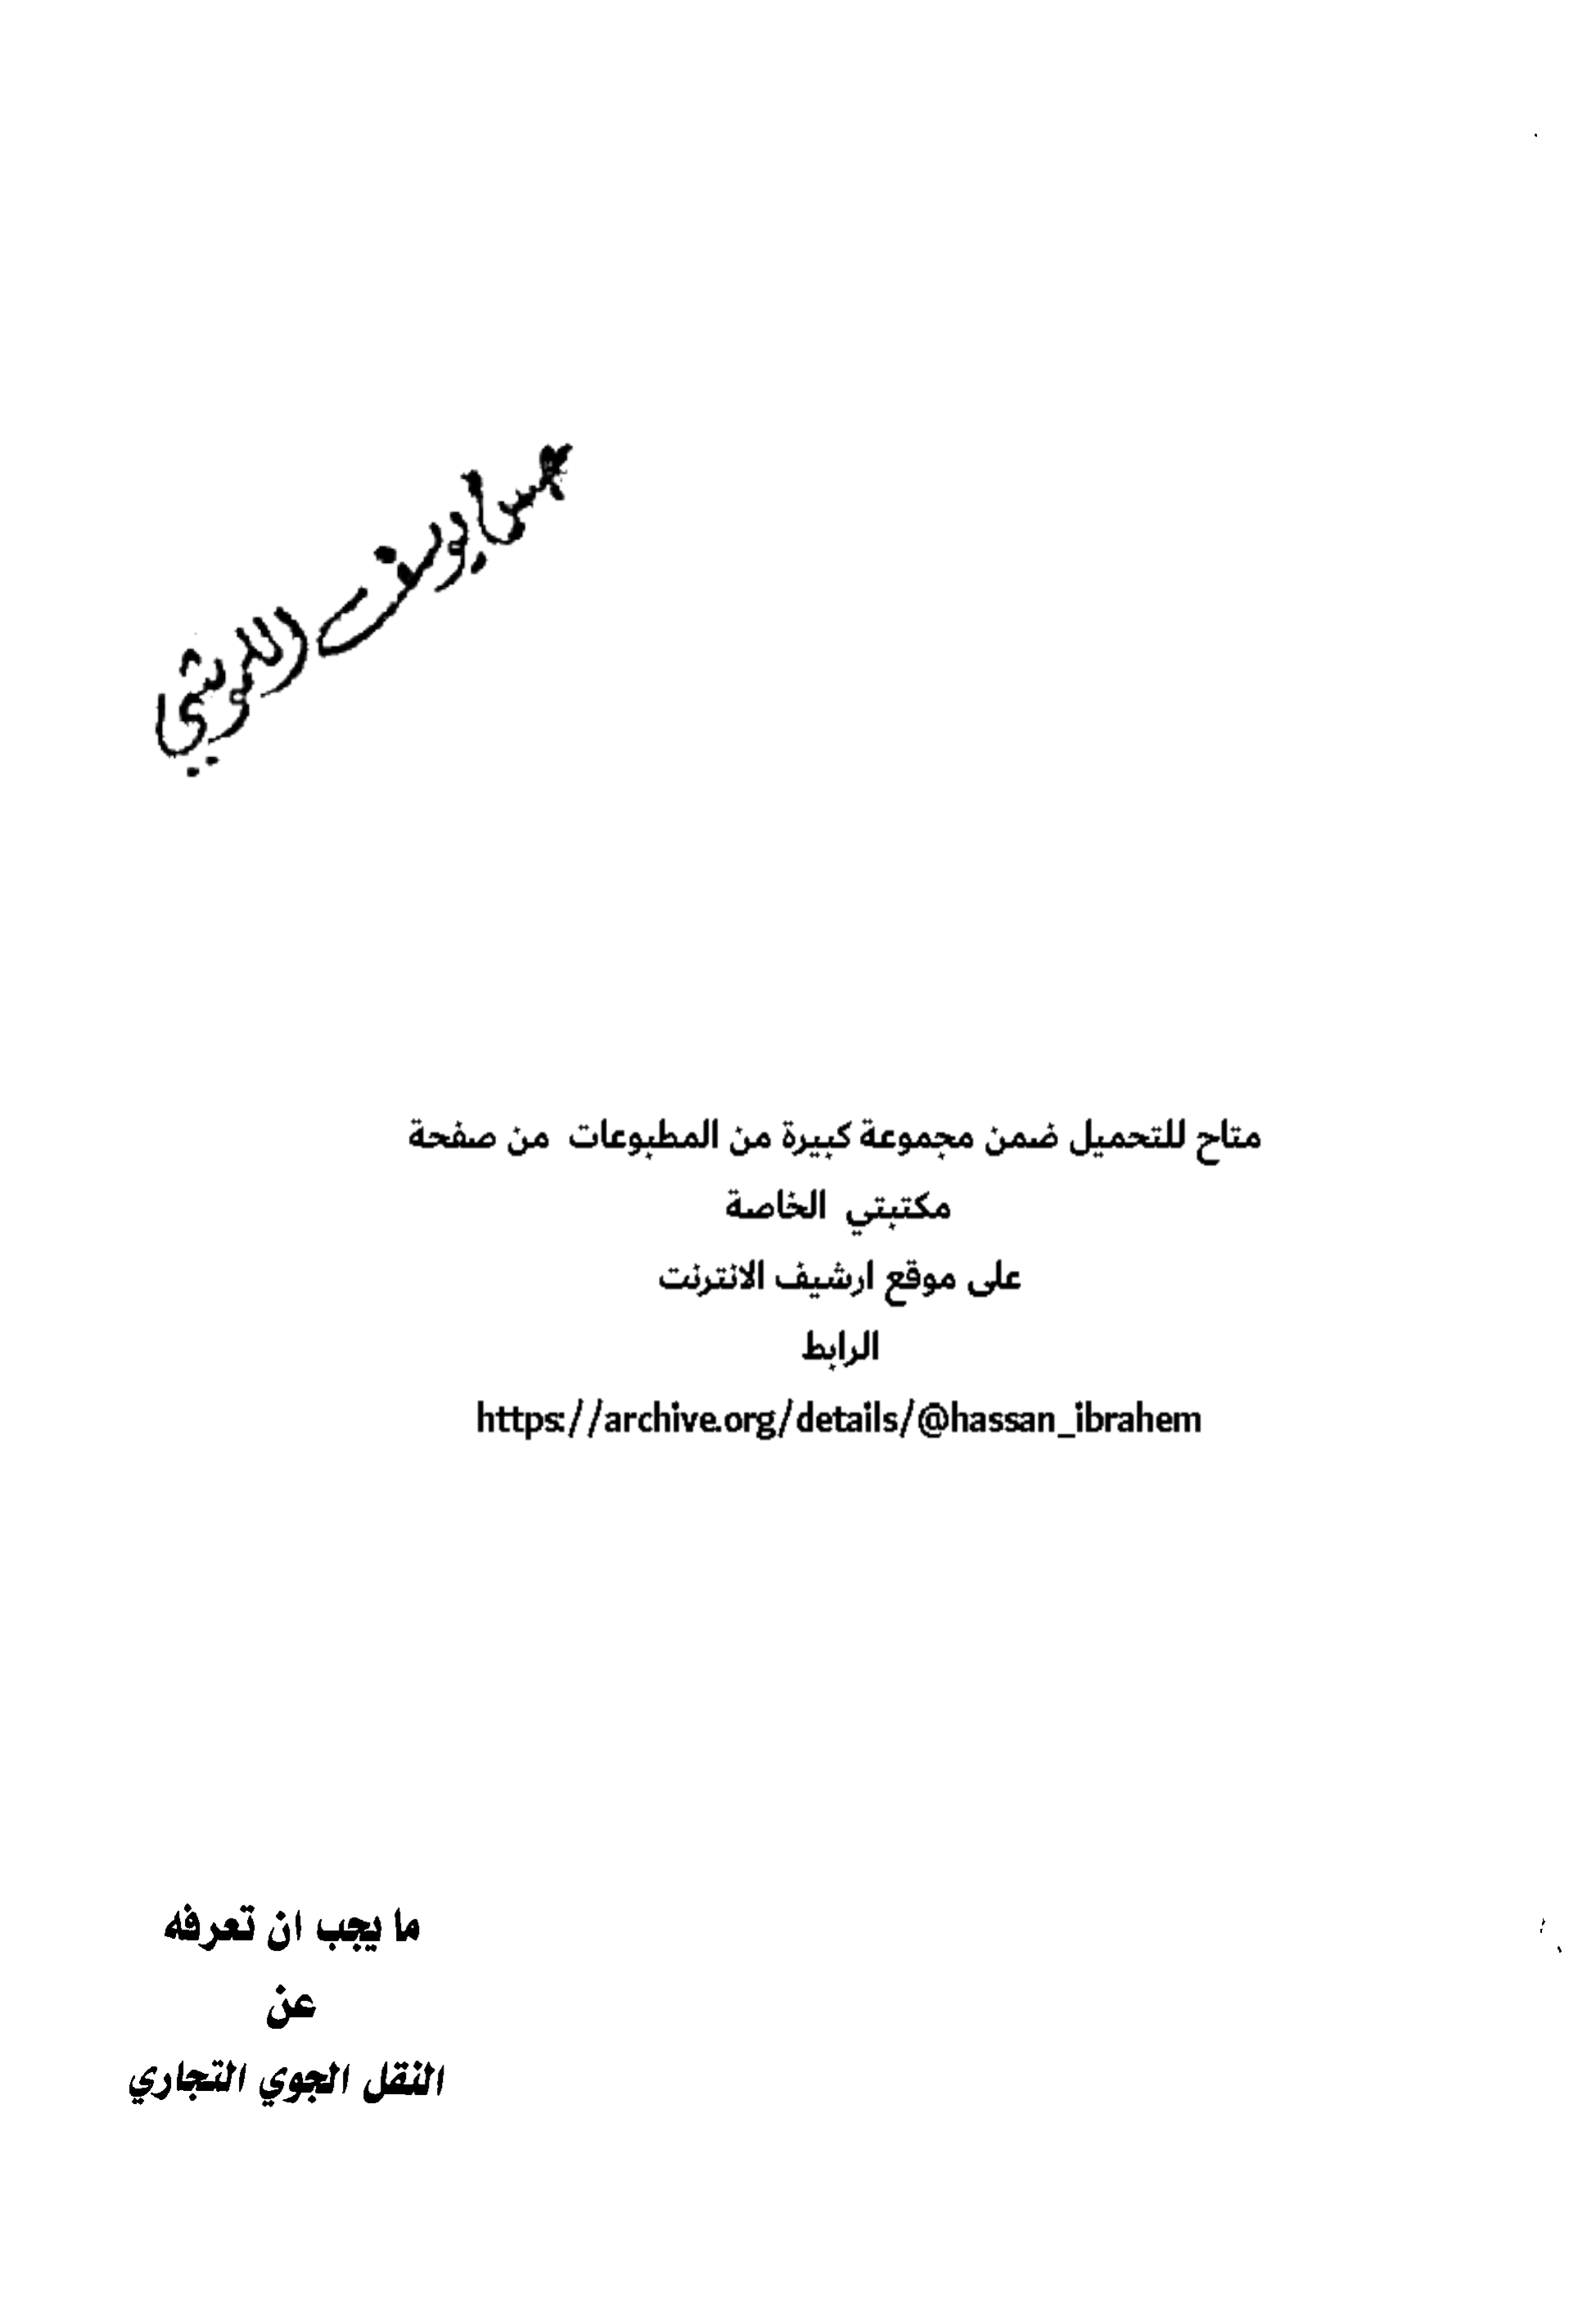 يوسف
متاح للتحميل ضمن مجموعة كبيرة من المطبوعات من صفحة
مكتبتي الخاصة
على موقع ارشيف الانترنت
الرابط
https://archive.org/details/@hassan_ibrahem
ما يجب ان تعرفه
عن
النقل الجوي التجاري